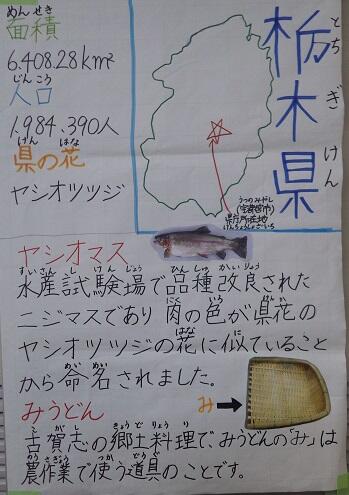 栃木県
とちぎけん
めんせき
面積
6.408.28km²
じんこう
人口
1,984,390人
けん はな
県の花
ヤシオツツジ
うつのみやし
(宇都宮市)
県庁所在地
けんちょうしょざいち
ヤシオマス
すいさんしけんじょう ひんしゅかいりょう
水産試験場で品種改良された
にく いろ けんか
ニジマスであり肉の色が県花の
はな に
ヤシオツツジの花に似ていること
めいめい
から命名されました。
みうどん
み
こがし きょうどりょうり
古賀志の郷土料理で、みうどんの「み」は
のうさぎょう つか どうぐ
農作業で使う道具のことです。